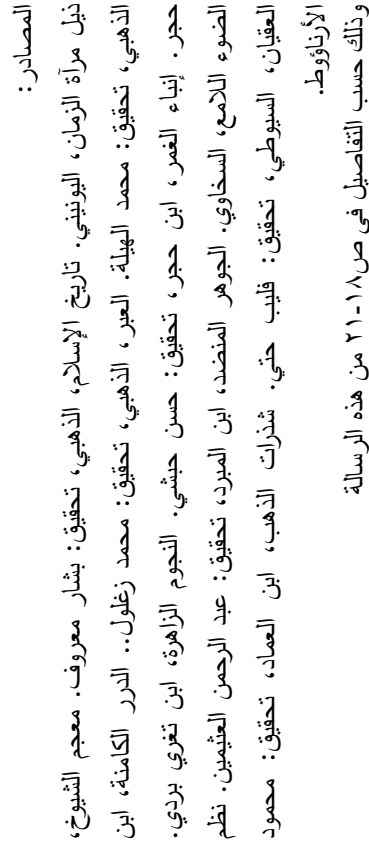 المصادر:
ذيل مرآة الزمان، اليونيني. تاريخ الإسلام، الذهبي، تحقيق: بشار معروف. معجم الشيوخ،
الذهبي، تحقيق: محمد الهيلة. العبر، الذهبي، تحقيق: محمد زغلول.. الدرر الكامنة، ابن
حجر. إنباء الغمر، ابن حجر، تحقيق: حسن حبشي. النجوم الزاهرة، ابن تغري بردي.
الضوء اللامع، السخاوي. الجوهر المنضد، ابن المبرد، تحقيق: عبد الرحمن العثيمين. نظم
العقيان، السيوطي، تحقيق: فليب حتي. شذرات الذهب، ابن العماد، تحقيق: محمود
الأرناؤوط.
وذلك حسب التفاصيل في ص١٨-٢١ من هذه الرسالة